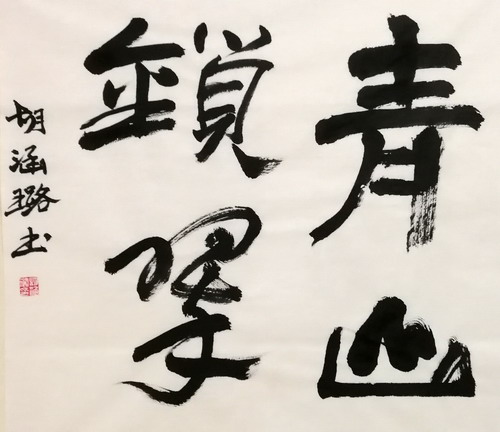 青山
鎖翠
胡涵璐书